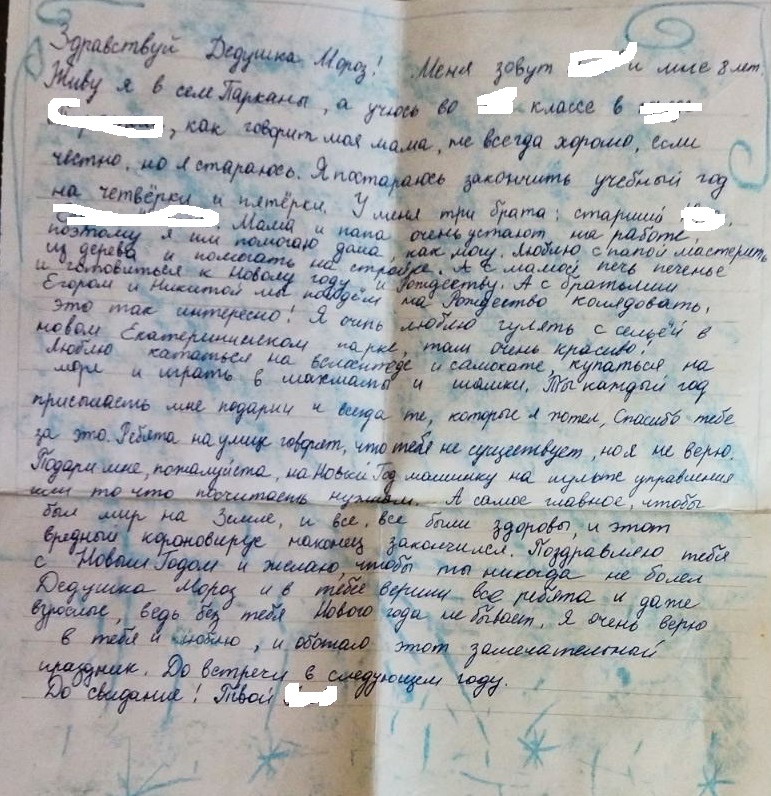 Здравствуй Дедушка Мороз! Меня зовут и мне 8 лет.
Живу я в селе Парканы, а учюсь во классе в
, как говорит моя мама, не всегда хорошо, если
честно, но я стараюсь. Я постараюсь закончить учебный год
на четвёрки и пятёрки. У меня три брата: старший
. Мама и папа очень устают на работе,
поэтому я им помогаю дома, как могу. Люблю с папой мастерить
из дерева и помогать на стройке. А с мамой печь печенье
и готовиться к Новому году и Рождеству. А с братьями
Егором и Никитой мы пойдём на Рождество колядовать,
это так интересно! Я очень люблю гулять с семьёй в
новом Екатерининском парке, там очень красиво!
Люблю кататься на велосипеде и самокате, купаться на
море и играть в шахматы и шашки. Ты каждый год
присылаешь мне подарки и всегда те, которые я хотел, Спасибо тебе
за это. Ребята на улице говорят, что тебя не существует, но я не верю.
Подари мне, пожалуйста, на Новый Год машинку на пульте управления
или то что посчитаешь нужным. А самое главное, чтобы
был мир на Земле, и все, все были здоровы, и этот
вредный короновирус наконец закончился. Поздравляю тебя
с Новым Годом и желаю, чтобы ты никогда не болел
Дедушка Мороз и в тебя верили все ребята и даже
взрослые, ведь без тебя Нового года не бывает. Я очень верю
в тебя и люблю, и обожаю этот замечательный
праздник. До встречи в следующем году.
До свидание! Твой